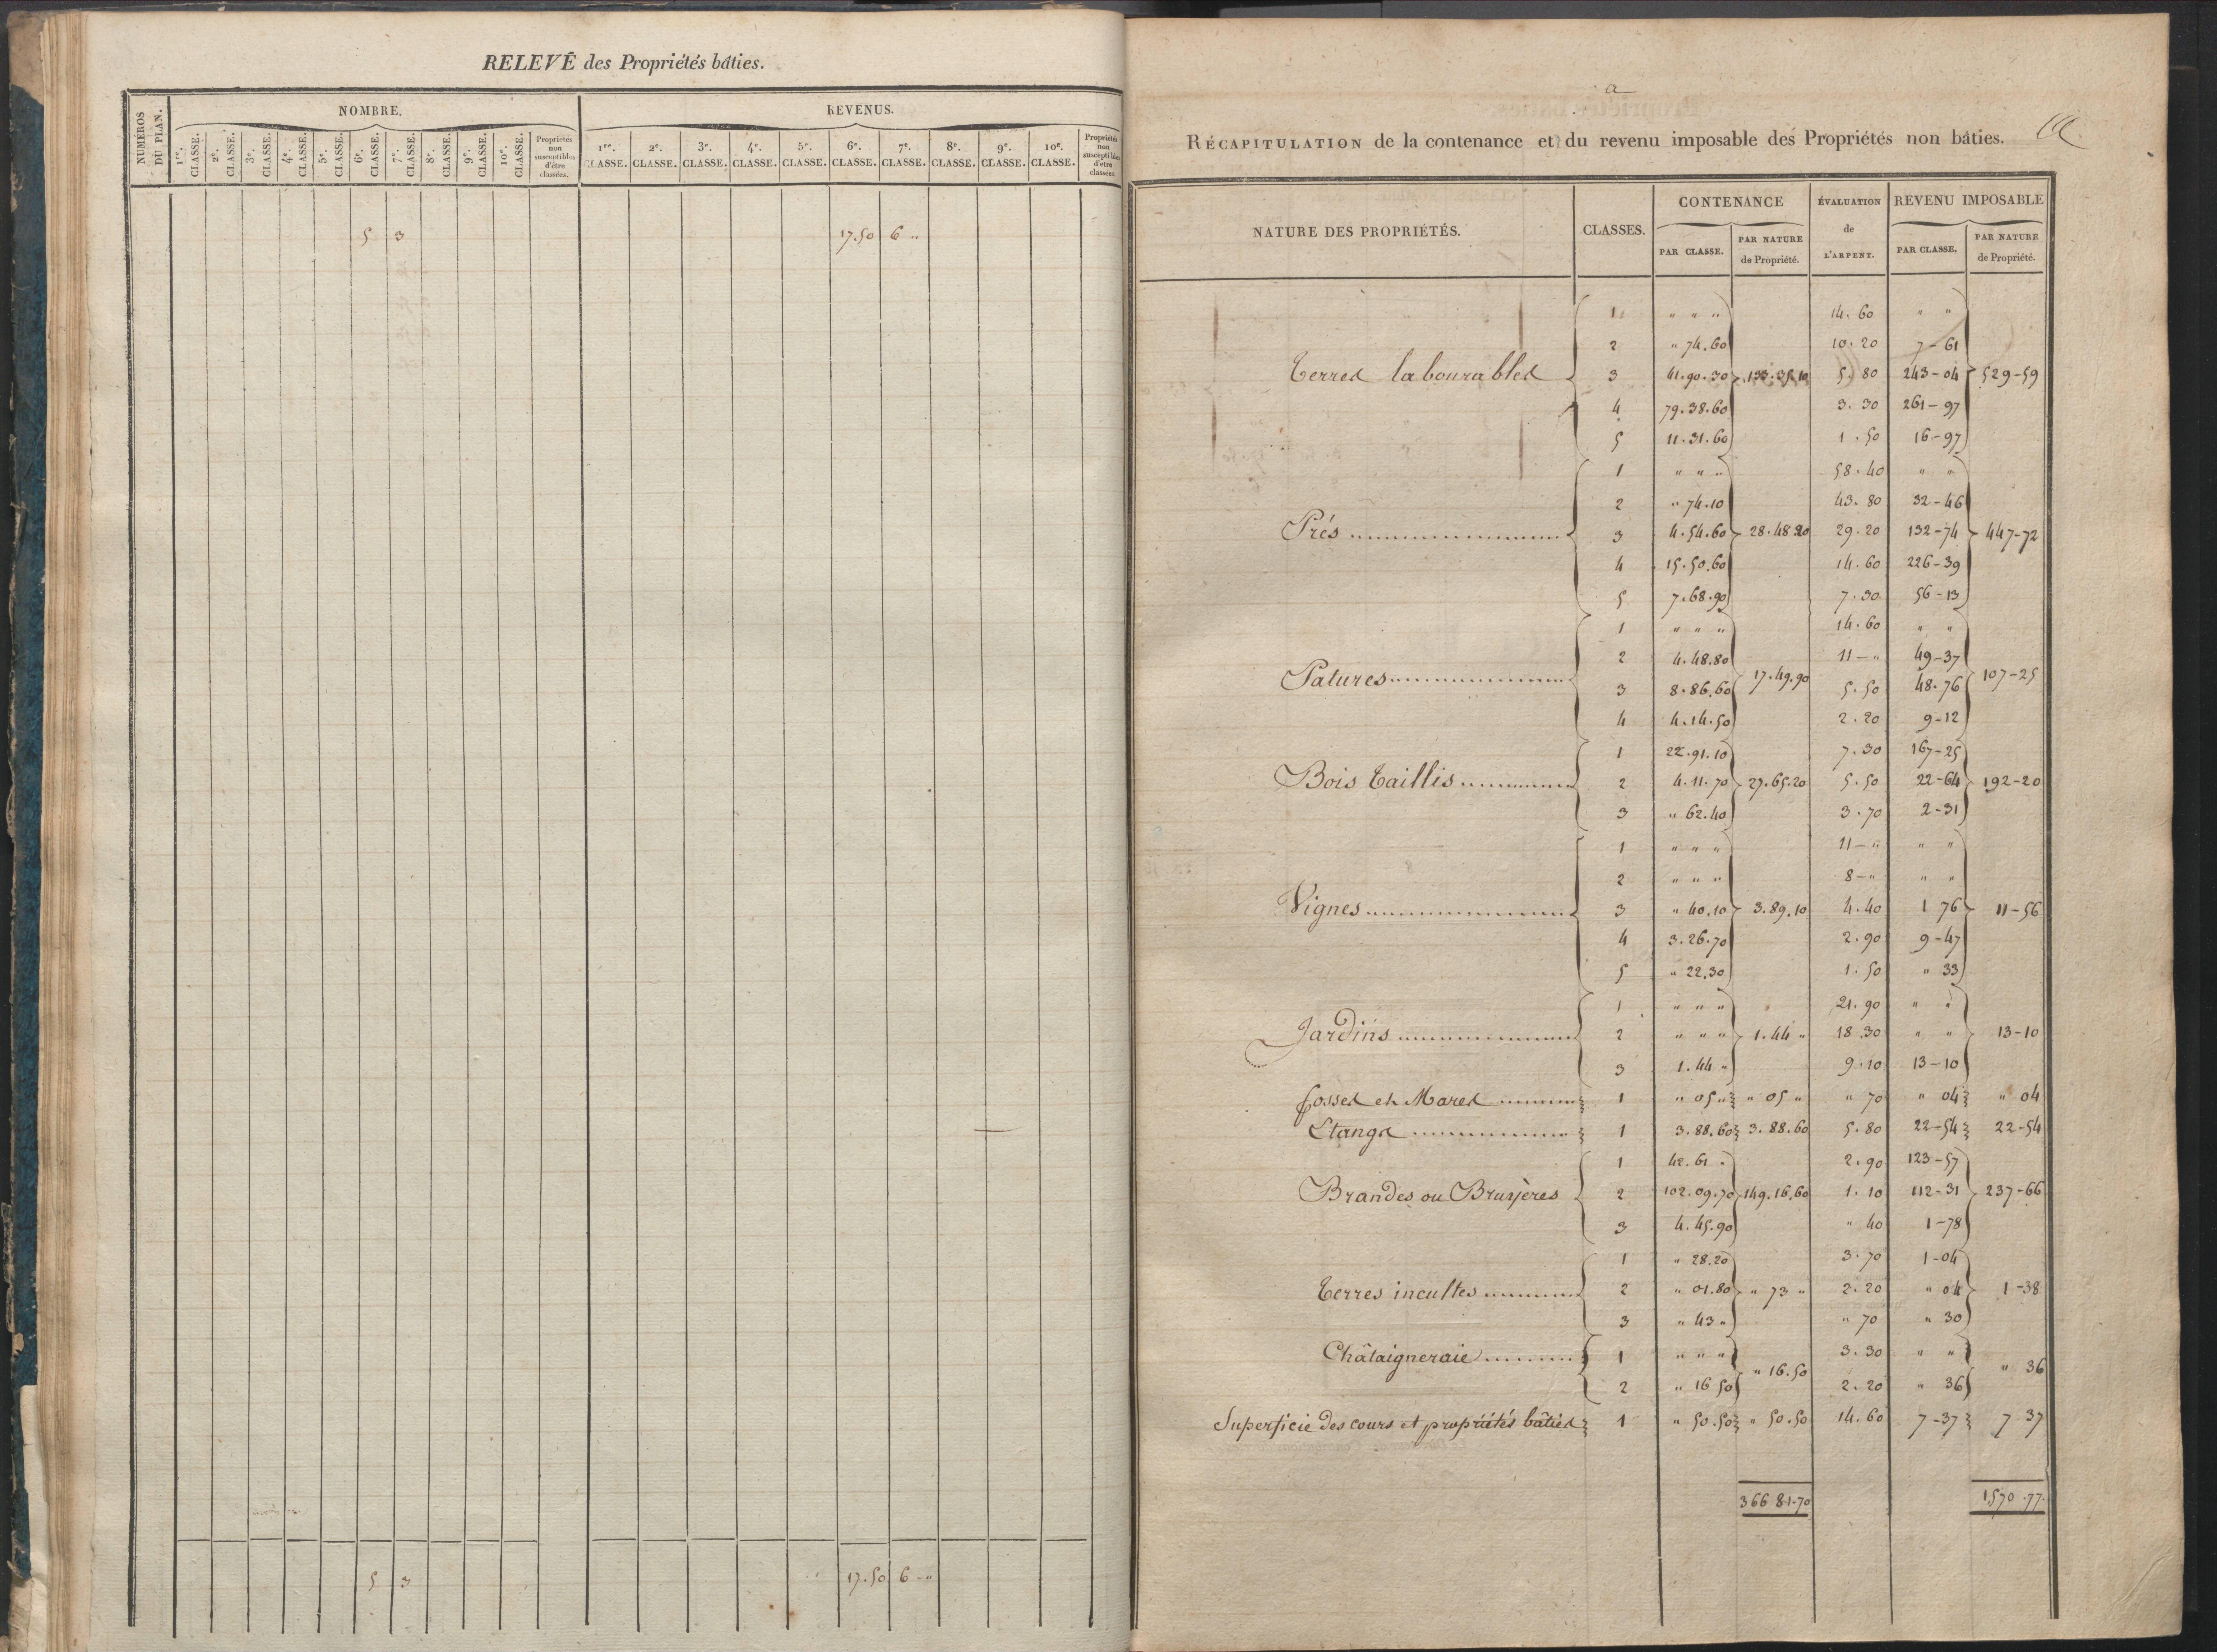 RELEVÉ des Propriétés bâties.
NUMÉROS DU PLAN. NOMBRE. REVENUS.
1re. CLASSE. 2e. CLASSE. 3e. CLASSE. 4e. CLASSE. 5e. CLASSE. 6e. CLASSE. 7e. CLASSE. 8e. CLASSE. 9e. CLASSE. 10e. CLASSE. Propriétés non susceptibles d'être classées. 1re. CLASSE. 2e. CLASSE. 3e. CLASSE. 4e. CLASSE. 5e. CLASSE. 6e. CLASSE. 7e. CLASSE. 8e. CLASSE. 9e. CLASSE. 10e. CLASSE. Propriétés non susceptibles d'être classées.
5 3 17.50 6 "
5 3 17.50 6 - "
a
RÉCAPITULATION de la contenance et du revenu imposable des Propriétés non bâties.
NATURE DES PROPRIÉTÉS. CLASSES. CONTENANCE ÉVALUATION de L'ARPENT. REVENU IMPOSABLE
PAR CLASSE. PAR NATURE de Propriété. PAR CLASSE. PAR NATURE de Propriété.
1 " " " 14.60 " "
2 " 74.60 10.20 7-61
Terres labourables 3 41.90.30 133.35.10 5.80 243-04 529-59
4 79.38.60 3.30 261-97
5 11.31.60 1.50 16-97
1 " " " 58.40 " "
2 " 74.10 43.80 32-46
Prés 3 4.54.60 28.48.20 29.20 132-74 447-72
4 15.50.60 14.60 226-39
5 7.68.90 7.30 56-13
1 " " " 14.60 " "
2 4.48.80 11-" 49-37
Patures 17.49.90 107-25
3 8.86.60 5.50 48.76
4 4.14.50 2.20 9-12
1 22.91.10 7.30 167-25
Bois taillis 2 4.11.70 27.65.20 5.50 22-64 192-20
3 " 62.40 3.70 2-31
1 " " " 11-" " "
2 " " " 8-" " "
Vignes 3 " 40.10 3.89.10 4.40 1 76 11-56
4 3.26.70 2.90 9-47
5 " 22.30 1.50 " 33
1 " " " 21.90 " "
Jardins 2 " " " 1.44 " 18.30 " " 13-10
3 1.44 " 9.10 13-10
fosses et Mares 1 " 05 " " 05 " " 70 " 04 " 04
Etangs 1 3.88.60 3.88.60 5.80 22-54 22-54
1 42.61 " 2.90 123-57
Brandes ou Bruyères 2 102.09.70 149.16.60 1.10 112-31 237-66
3 4.45.90 " 40 1-78
1 " 28.20 3.70 1-04
Terres incultes 2 " 01.80 " 73 " 2.20 " 04 1-38
3 " 43 " " 70 " 30
Châtaigneraie 1 " " " 3.30 " "
" 16.50 " 36
2 " 16 50 2.20 " 36
Superficie des cours et propriétés bâties 1 " 50.50 " 50.50 14.60 7-37 7 37
366 81-70 1570.77